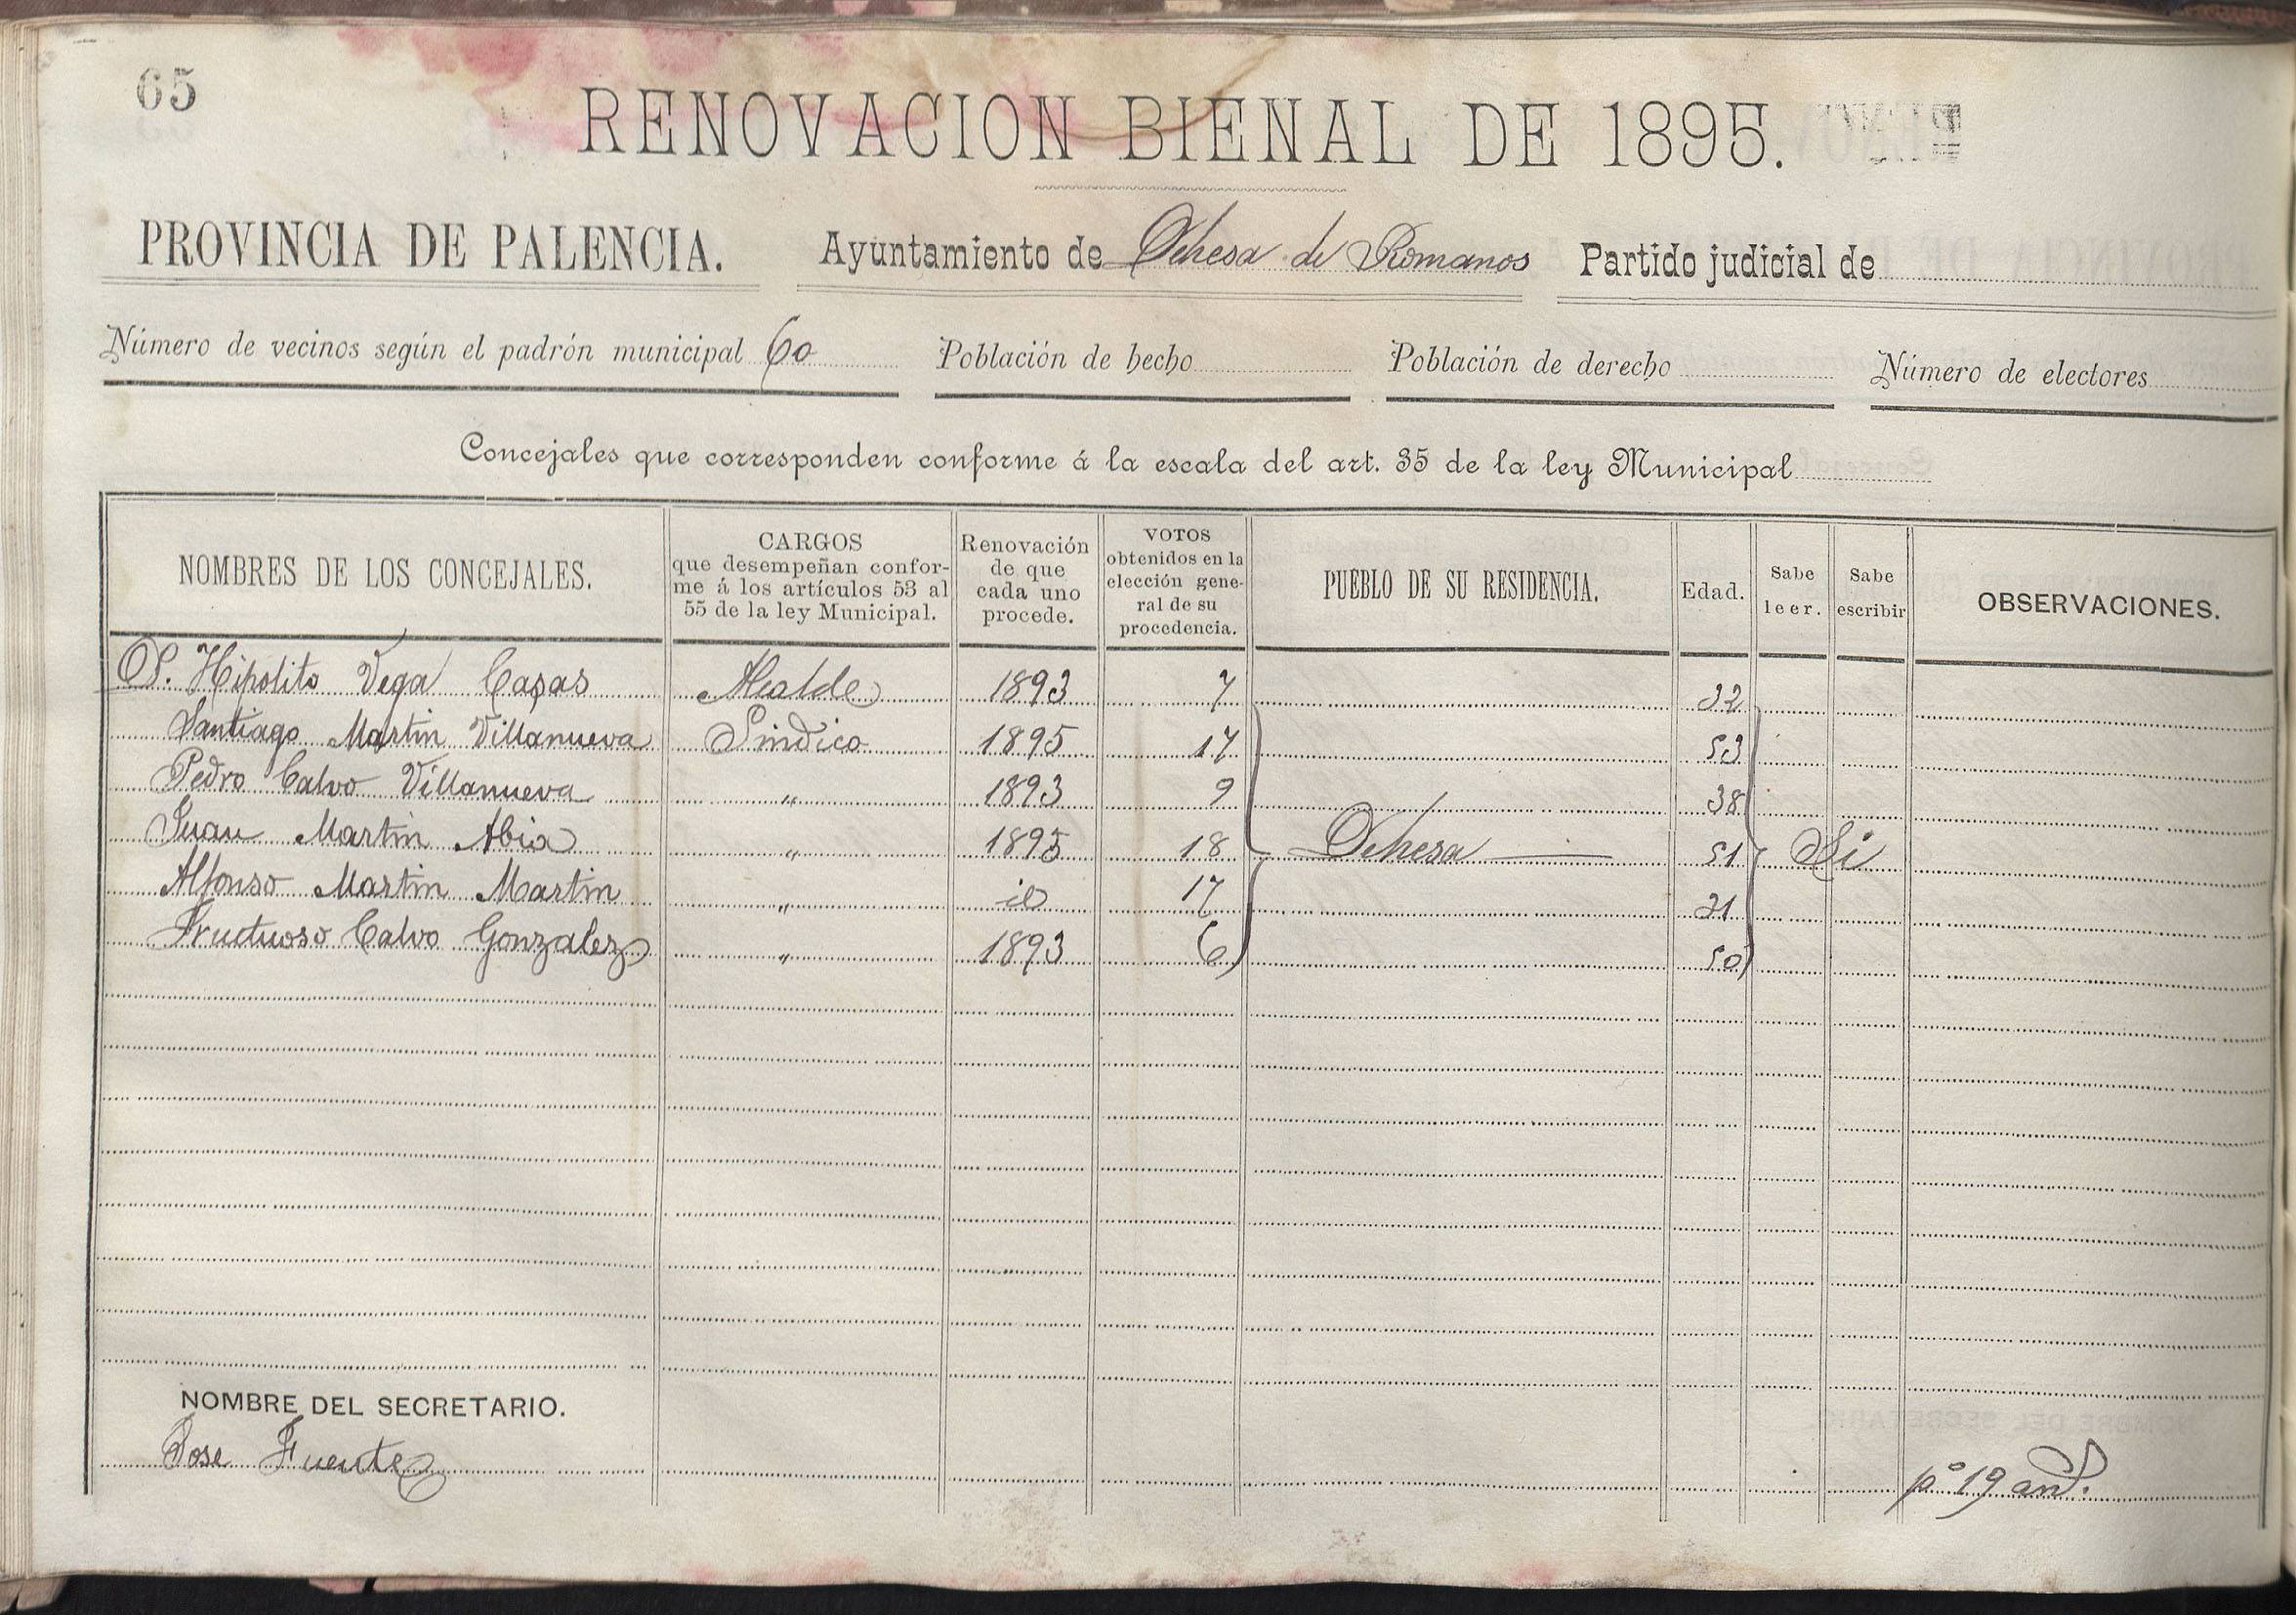 65
RENOVACION BIENAL DE 1895.
PROVINCIA DE PALENCIA. Ayuntamiento de Dehesa de Romanos Partido judicial de
Número de vecinos según el padrón municipal 60 Población de hecho Población de derecho Número de electores
Concejales que corresponden conforme á la escala del art. 35 de la ley Municipal
NOMBRES DE LOS CONCEJALES.
CARGOS
que desempeñan confor-
me á los artículos 53 al
55 de la ley Municipal.
Renovación
de que
cada uno
procede.
VOTOS
obtenidos en la
elección gene-
ral de su
procedencia.
PUEBLO DE SU RESIDENCIA.
Edad.
Sabe
leer.
Sabe
escribir
OBSERVACIONES.
D. Hipolito Vega Casas Alcalde 1893 7 32
Santiago Martin Villanueva Sindico 1895 17 53
Pedro Calvo Villanueva " 1893 9 38
Juan Martin Abia " 1895 18 Dehesa 51 Si
Alfonso Martin Martin " id 17 31
Fructuoso Calvo Gonzalez " 1893 6 50
NOMBRE DEL SECRETARIO.
Jose Fuente
pº 19 and.